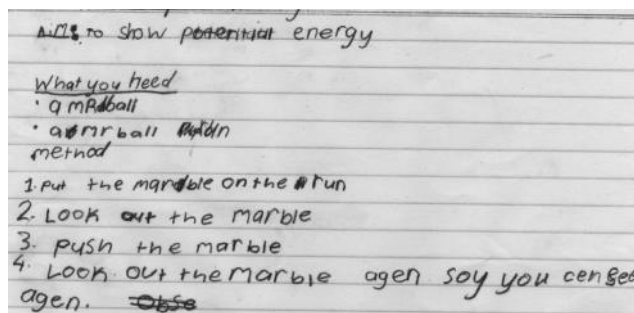 Aim: to show potential energy
What you need
• a marball
• a mrball run
method
1. Put the marble on the run
2. Look out the marble
3. push the marble
4. Look out the marble agen soy you cen see
agen.